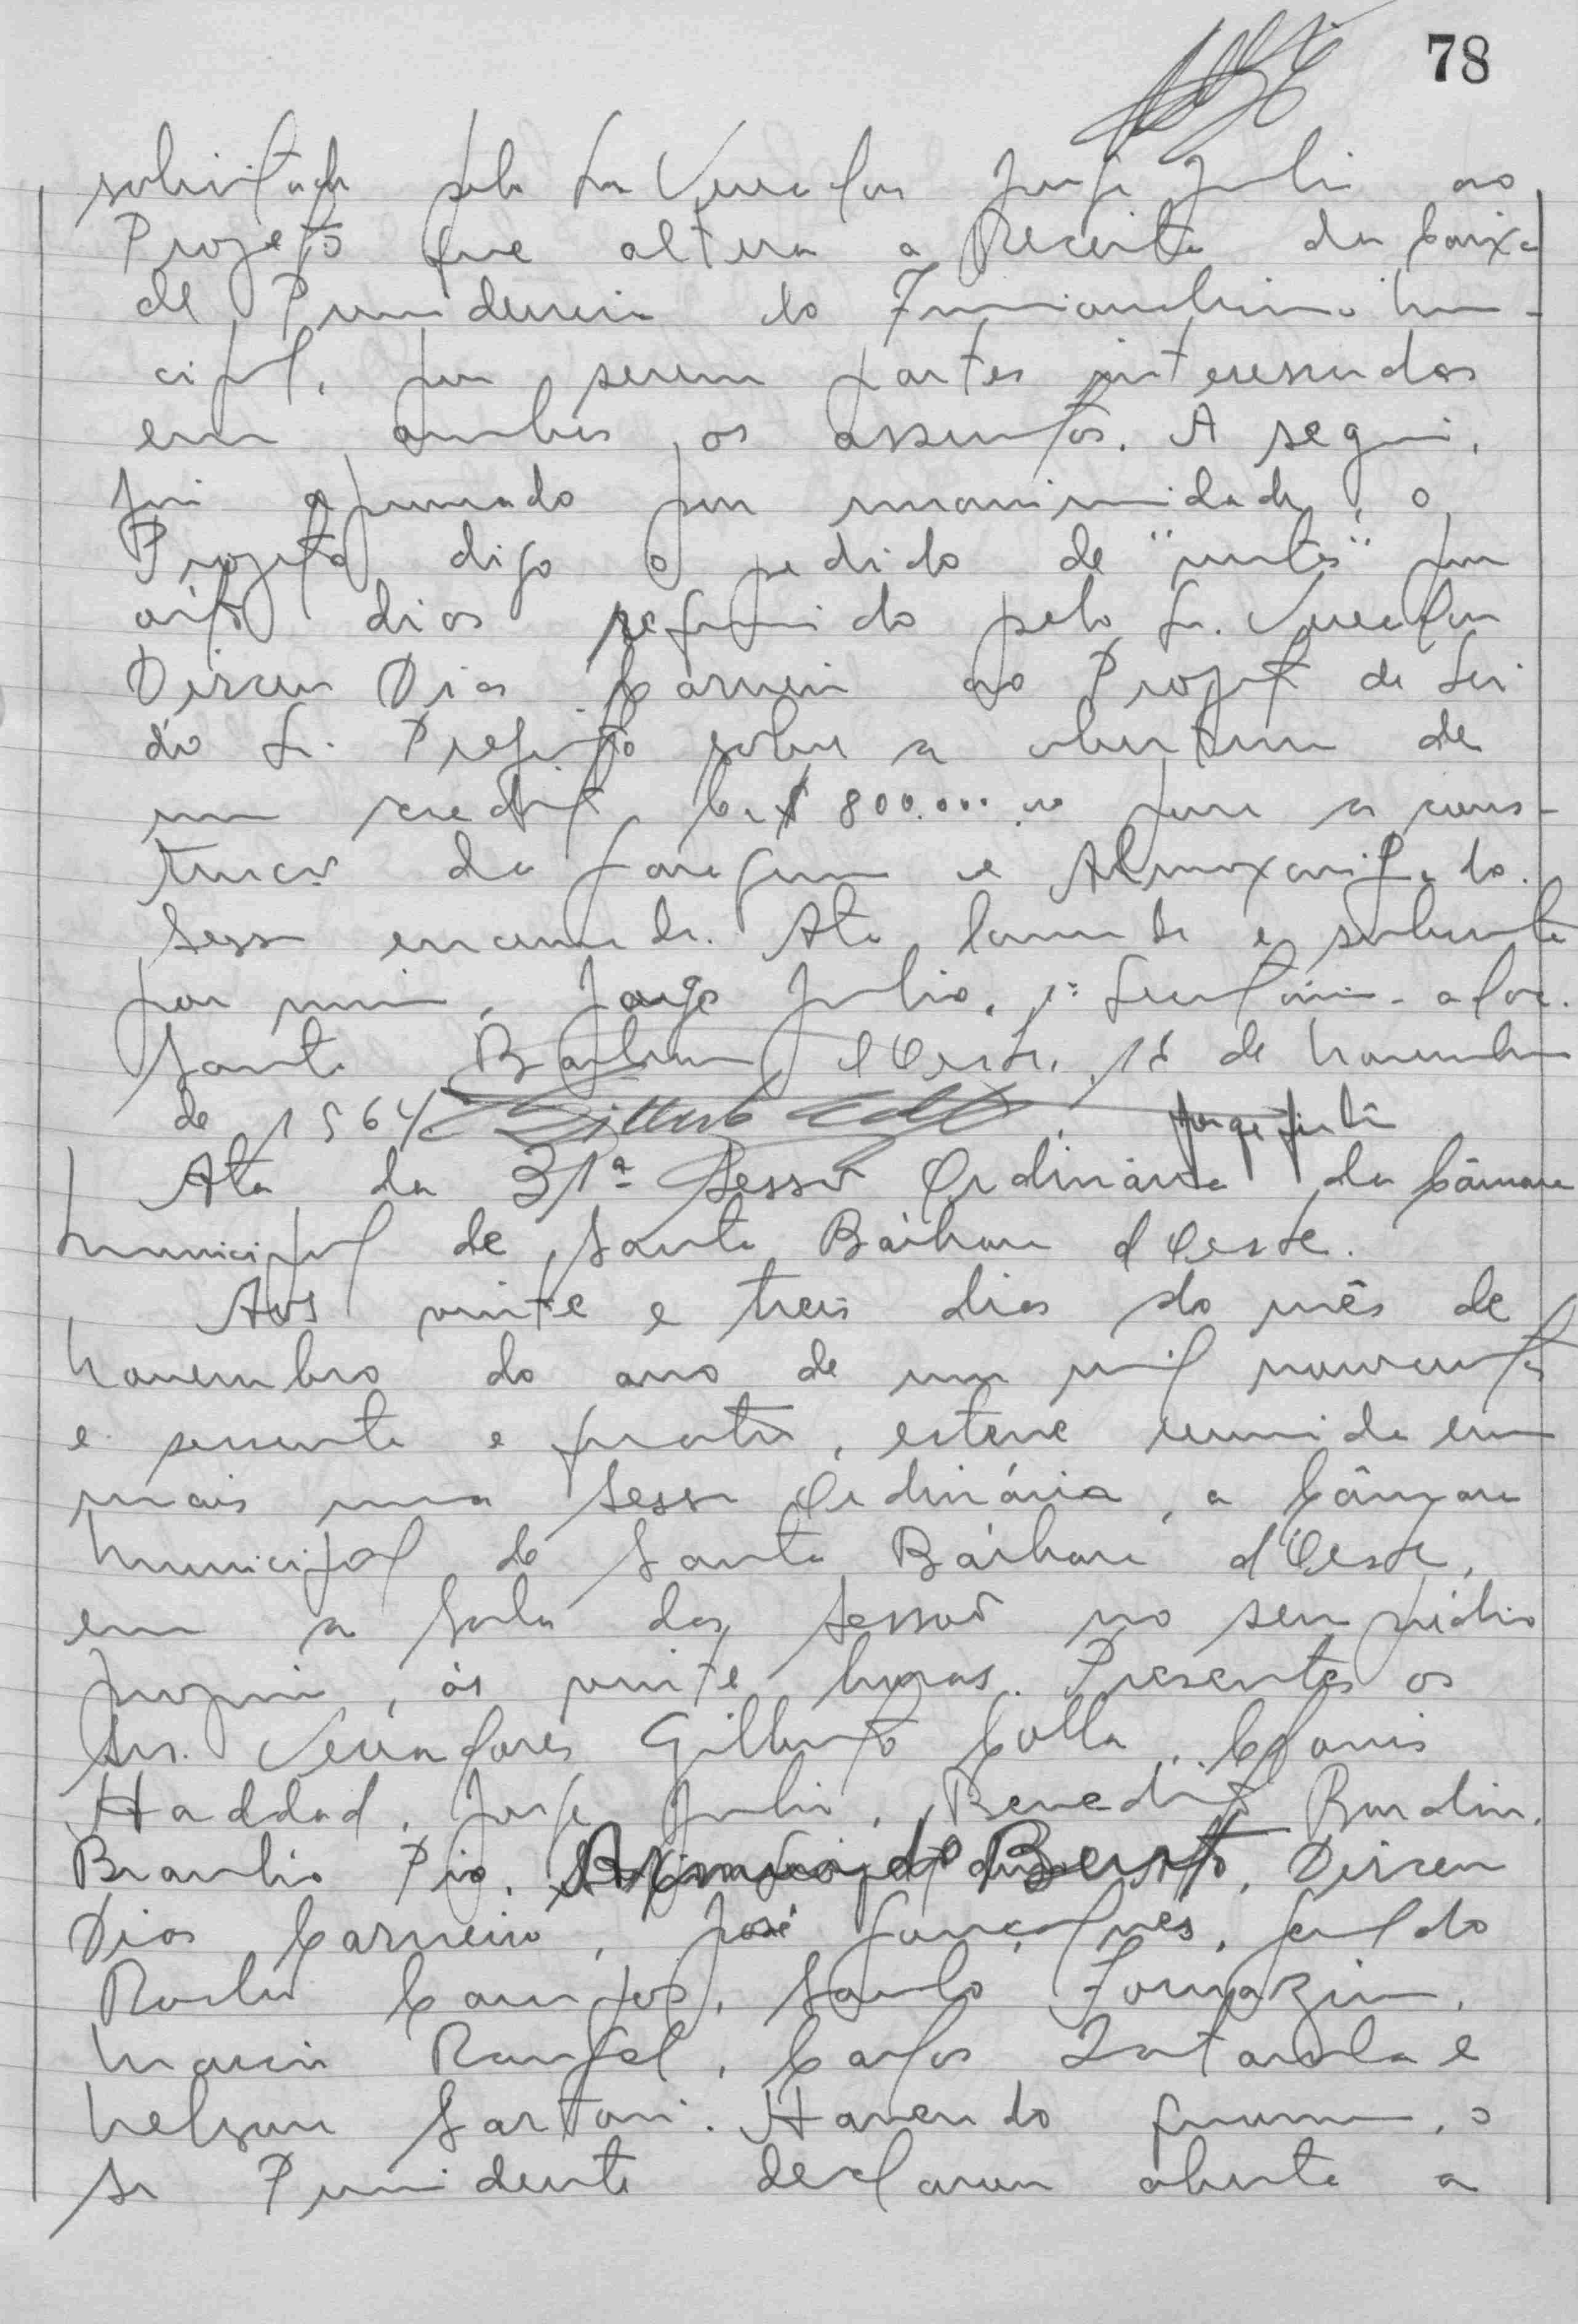 78
solicitada pelo Sr Vereador Jorge Julio ao
Projeto que altera a Receita da Caixa
de Previdencia do Funcionalismo Muni-
cipal, por serem partes interessadas
em ambos os assuntos. A seguir,
foi aprovado por unanimidade, o
Projeto digo o pedido de "vistas" por
oito dias requerido pelo Sr. Vereador
Dirceu Dias Carneiro ao Projeto de Lei
do Sr. Prefeito sobre a abertura de
um credito Cr$ 800.000,00 para a cons-
trução da garagem e Almoxarifado.
Sessão encerrada. Ata lavrada e subscrita
por mim, Jorge Julio, 1º Secretário
Santa Barbara d'Oeste, de Novembro
de 1964 Jorge Julio
Ata da 31ª Sessão Ordinária da Câmara
Municipal de Santa Bárbara d'Oeste.
Aos vinte e treis dias do mês de
Novembro do ano de um mil novecentos
e sessenta e quatro, esteve reunida em
mais uma Sessão Ordinária, a Câmara
Municipal de Santa Bárbara d'Oeste,
em a Sala das Sessões no seu prédio
proprio, ás vinte horas. Presentes os
Srs. Vereadores Gilberto Colla, Clovis
Haddad, Jorge Julio, Benedito Bordin,
Braulio Pio, Dirceu
Dias Carneiro, José Gonçalves, Geraldo
Rocha Campos, Santo Fornazin,
Marin Rangel, Carlos e
Nelson Sartori. Havendo quorum, o
Sr Presidente declarou aberta a